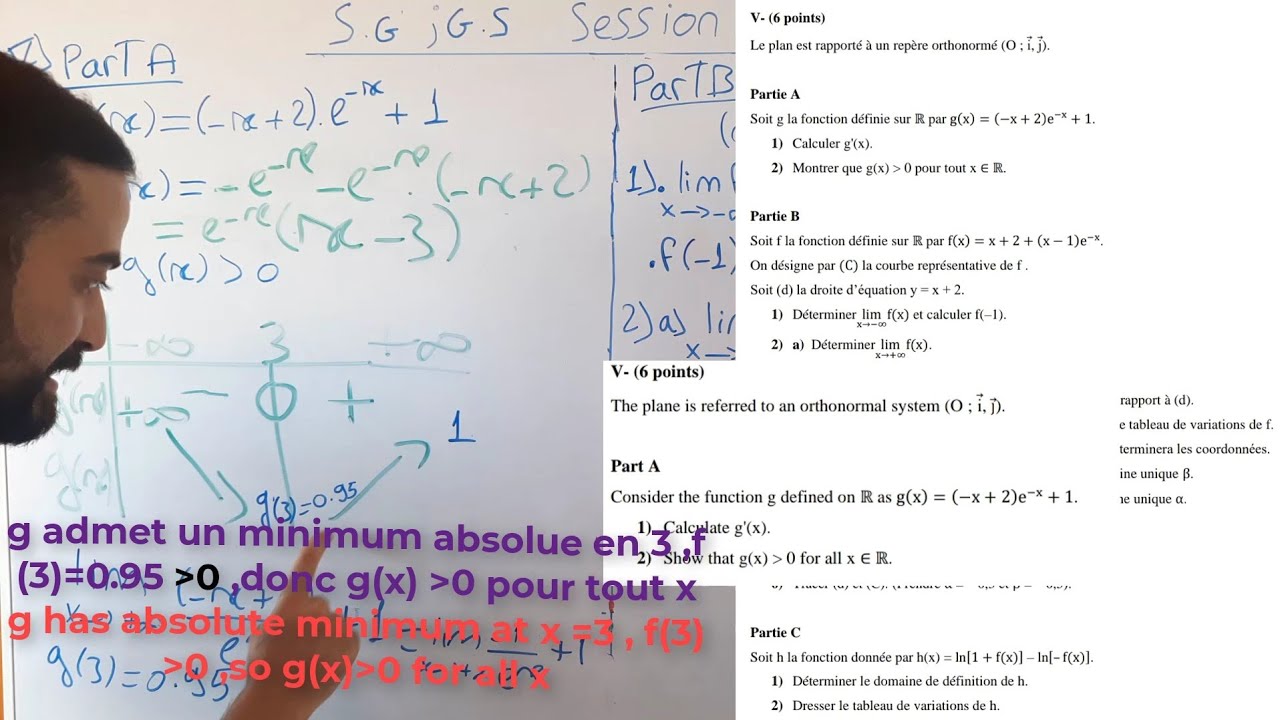 S.G ; G.S Session
Part A
(x) = (-x+2).e^-x + 1
(x) = -e^-x - e^-x.(-x+2)
= e^-x(x-3)
g(x) > 0
-∞ 3 +∞
- 0 +
+∞ 1
g(3)=0.95
g(3)=0.95
Part B
1). lim f
x→-∞
.f(-1)
2) a) lim
x→
g admet un minimum absolue en 3 ,f
(3)=0.95 >0 ,donc g(x) >0 pour tout x
g has absolute minimum at x =3 , f(3)
>0 ,so g(x)>0 for all x
V- (6 points)
Le plan est rapporté à un repère orthonormé (O ; i⃗, j⃗).
Partie A
Soit g la fonction définie sur ℝ par g(x) = (−x + 2)e^−x + 1.
1) Calculer g'(x).
2) Montrer que g(x) > 0 pour tout x ∈ ℝ.
Partie B
Soit f la fonction définie sur ℝ par f(x) = x + 2 + (x − 1)e^−x.
On désigne par (C) la courbe représentative de f .
Soit (d) la droite d'équation y = x + 2.
1) Déterminer lim f(x) et calculer f(–1).
x→−∞
2) a) Déterminer lim f(x).
x→+∞
rapport à (d).
e tableau de variations de f.
terminera les coordonnées.
ine unique β.
ne unique α.
V- (6 points)
The plane is referred to an orthonormal system (O ; i⃗, j⃗).
Part A
Consider the function g defined on ℝ as g(x) = (−x + 2)e^−x + 1.
1) Calculate g'(x).
2) Show that g(x) > 0 for all x ∈ ℝ.
Partie C
Soit h la fonction donnée par h(x) = ln[1 + f(x)] – ln[– f(x)].
1) Déterminer le domaine de définition de h.
2) Dresser le tableau de variations de h.